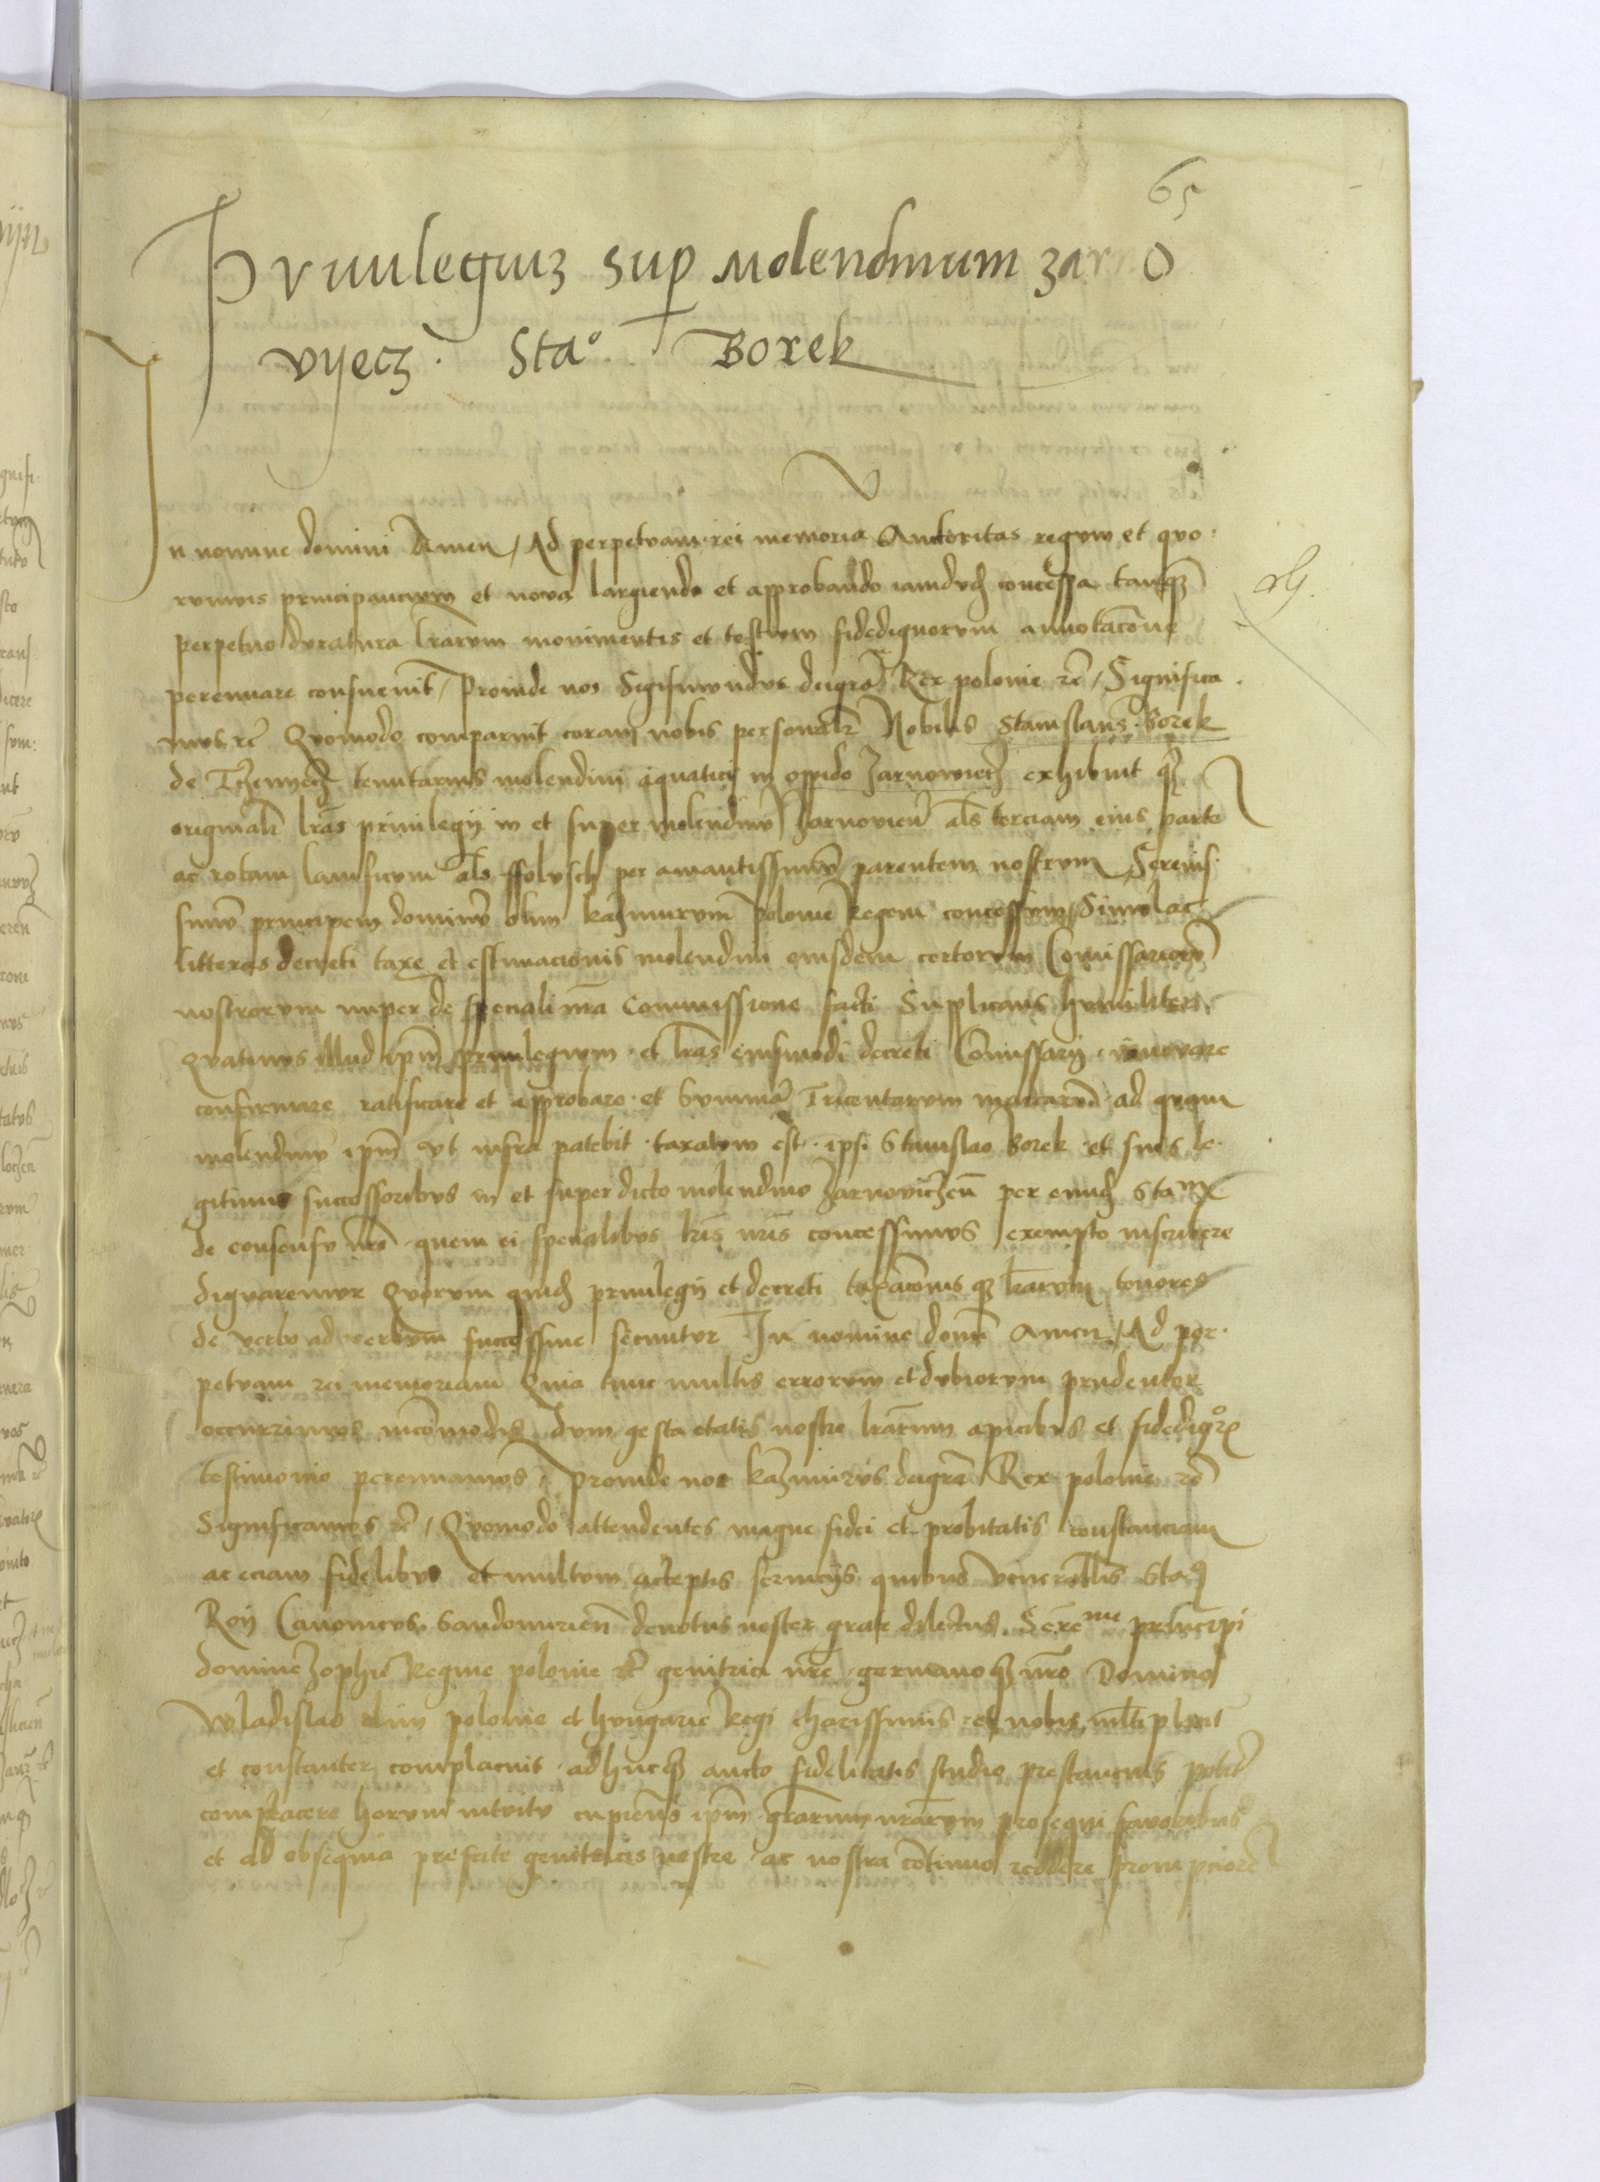 65
Priuilegiuz sup Molendinum zarno
vyecz. Sta°. Borek
In nomine domini Amen / Ad perpetuam rei memoriā Auctoritas regum et quo-
rumvis principancium et nova largiendo et approbando iamduđ concessa tanq̄
perpetuo duratura lrārum monimentis et testium fidedignorum annotacōne
perennare consuevit / Proinde nos Sigismundus deigrā Rex polonie rc̄ / Significa-
mus rc̄ Quomodo comparuit coram nobis personalr̄ Nobilis Stanislaus Borek
de tenutarius molendini aquatici in oppido Zarnowiecz exhibuit qꝫ
originales lrās priuilegij in et super molendinū Zarnovien̄ als terciam eius partē
ac rotam lanificum als ffolusch per amantissimū parentem nostrum Serenis-
simū principem dominū olim kazimirum Polonie Regem concessum Simulac
litteras decreti taxe et estimacionis molendini eiusdem certorum Comissariorꝫ
nostrorum nuper de speciali nrā Commissione facti Supplicans humiliter
Quatinus illud ipm̄ priuilegium et lrās eiusmodi decreti Comissarij innovare
confirmare ratificare et approbare et Summā Tricentarum marcarum ad quam
molendinū ipm̄ ut infra patebit taxatum est ipsi Stanislao Borek et suis le-
gitimis successoribus in et super dicto molendino Zarnoviczen̄ per eunđ Stanꝫ
de consensu nrō quem ei specialibus lris nris concessimus exempto inscribere
dignaremur Quorum quiđ priuilegij et decreti taxacōnis qꝫ lrārum tenores
de verbo ad verbum successive secuntur In nomine domī Amen / Ad per-
petuam rei memoriam Quia tunc multis errorum et dubiorum prudenter
occurrimus incōmodis dum gesta etatis nostre lrārum apicibus et fidedigoꝝ
testimonio perennamus / Proinde nos kazimirus deigrā Rex polonie rc̄
Significamus rc̄ / Quomodo attendentes magne fidei et probitatis constanciam
ac eciam fidelibus et multum acceptis seruicijs quibus venerabilis Sta
Roy Canonicus Sandomirien̄ devotus noster grate dilectus Sereme principi
domine Zophie Regine polonie rc̄ genitrici nrē germano qꝫ nrō Domino
Wladislao olim polonie et hungarie Regi charissimis et nobis mltiplicit̄
et constanter complacuit adhucqꝫ aucto fidelitatis studio prestancius poterit
complacere horum intuitu cupiens ipm̄ grārum nrārum prosequi favoribus
et ad obsequia prefate genitricis nostre ac nostra cōtinuo reddere prompciorē